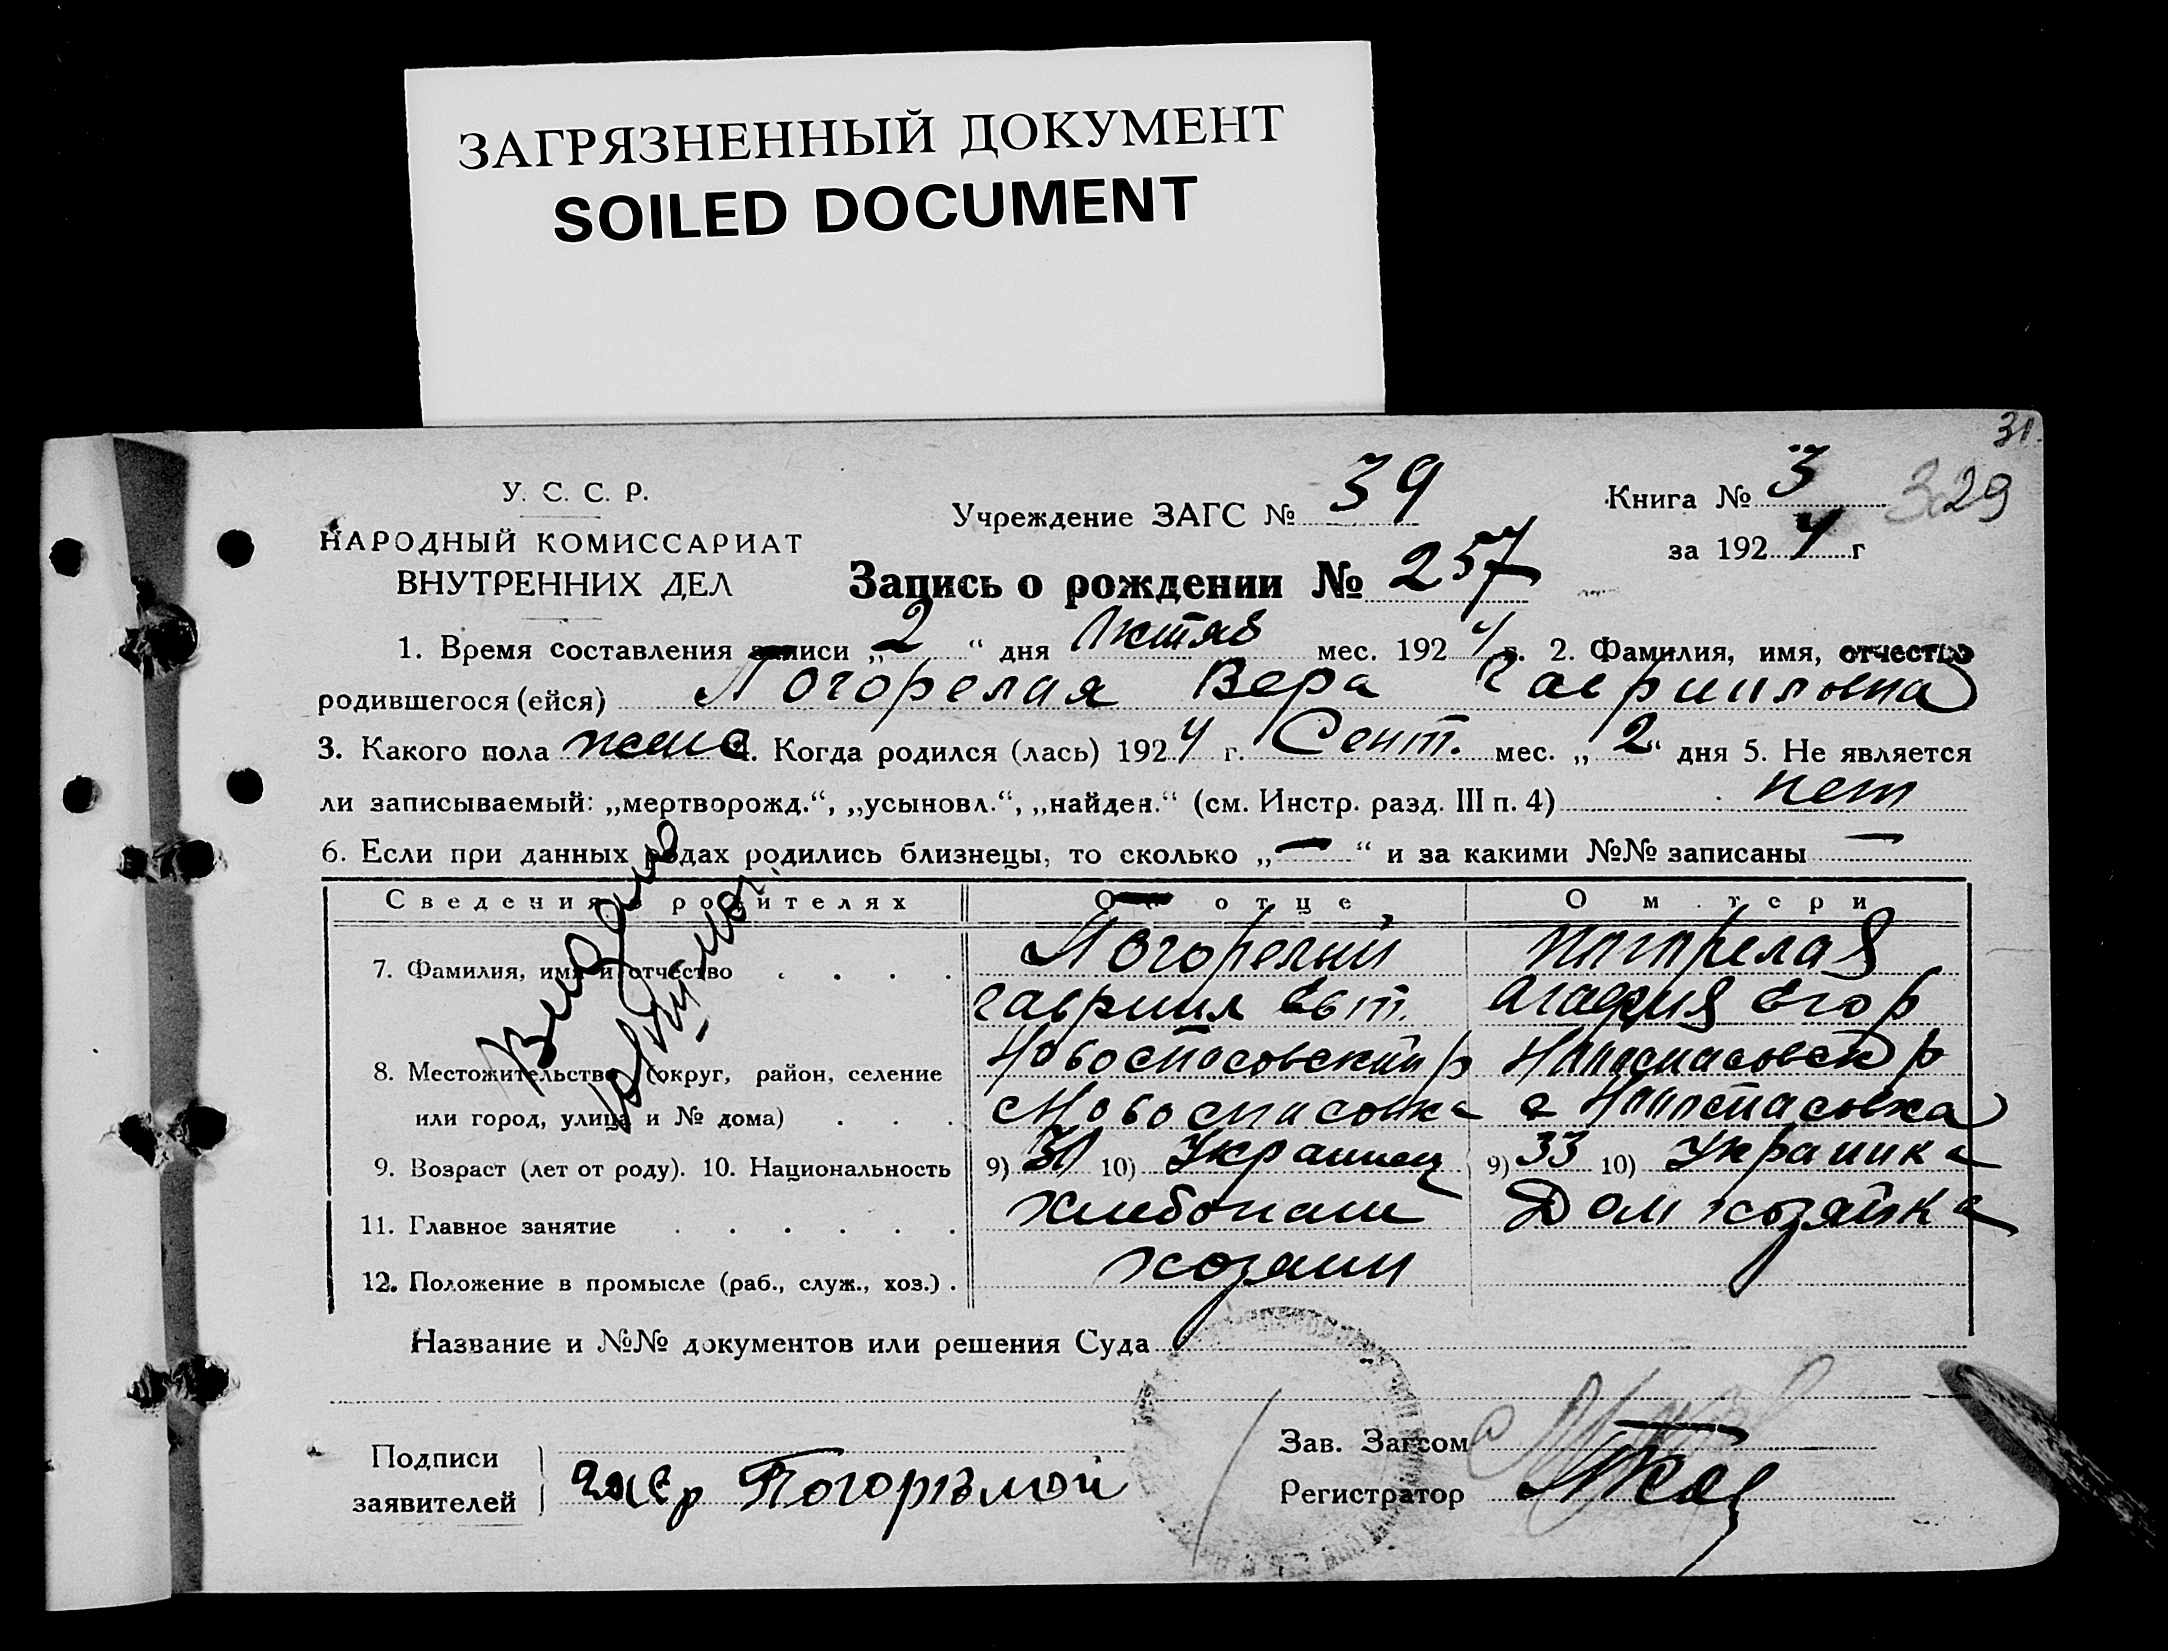 ЗАГРЯЗНЕННЫЙ ДОКУМЕНТ
SOILED DOCUMENT
31.
329
У. С. С. Р.
НАРОДНЫЙ КОМИССАРИАТ
ВНУТРЕННИХ ДЕЛ
Учреждение ЗАГС № 39
Книга № 3
за 1924 г
Запись о рождении № 257
1. Время составления записи „2“ дня Октяб мес. 1924 г. 2. Фамилия, имя, отчество
родившегося (ейся) Погорелая Вера Гаврииловна
3. Какого пола женс 4. Когда родился (лась) 1924 г. Сент. мес. „2“ дня 5. Не является
ли записываемый: „мертворожд.“, „усыновл.“, „найден.“ (см. Инстр. разд. III п. 4) нет
6. Если при данных родах родились близнецы, то сколько „—“ и за какими №№ записаны —
Сведения о родителях О отце О матери
7. Фамилия, имя и отчество Погорелый Погорелая
Гавриил Евт. Агафия Егор
8. Местожительство (округ, район, селение Новоспасовский р Новоспасовск р
или город, улица и № дома) с Новоспасовка с Новоспасовка
9. Возраст (лет от роду). 10. Национальность 9) 31 10) Украинец 9) 33 10) Украинка
11. Главное занятие Хлебопаш Дом хозяйка
12. Положение в промысле (раб., служ., хоз.) хозяин
Название и №№ документов или решения Суда
Подписи
заявителей
Погорѣлой
Зав. Загсом
Регистратор